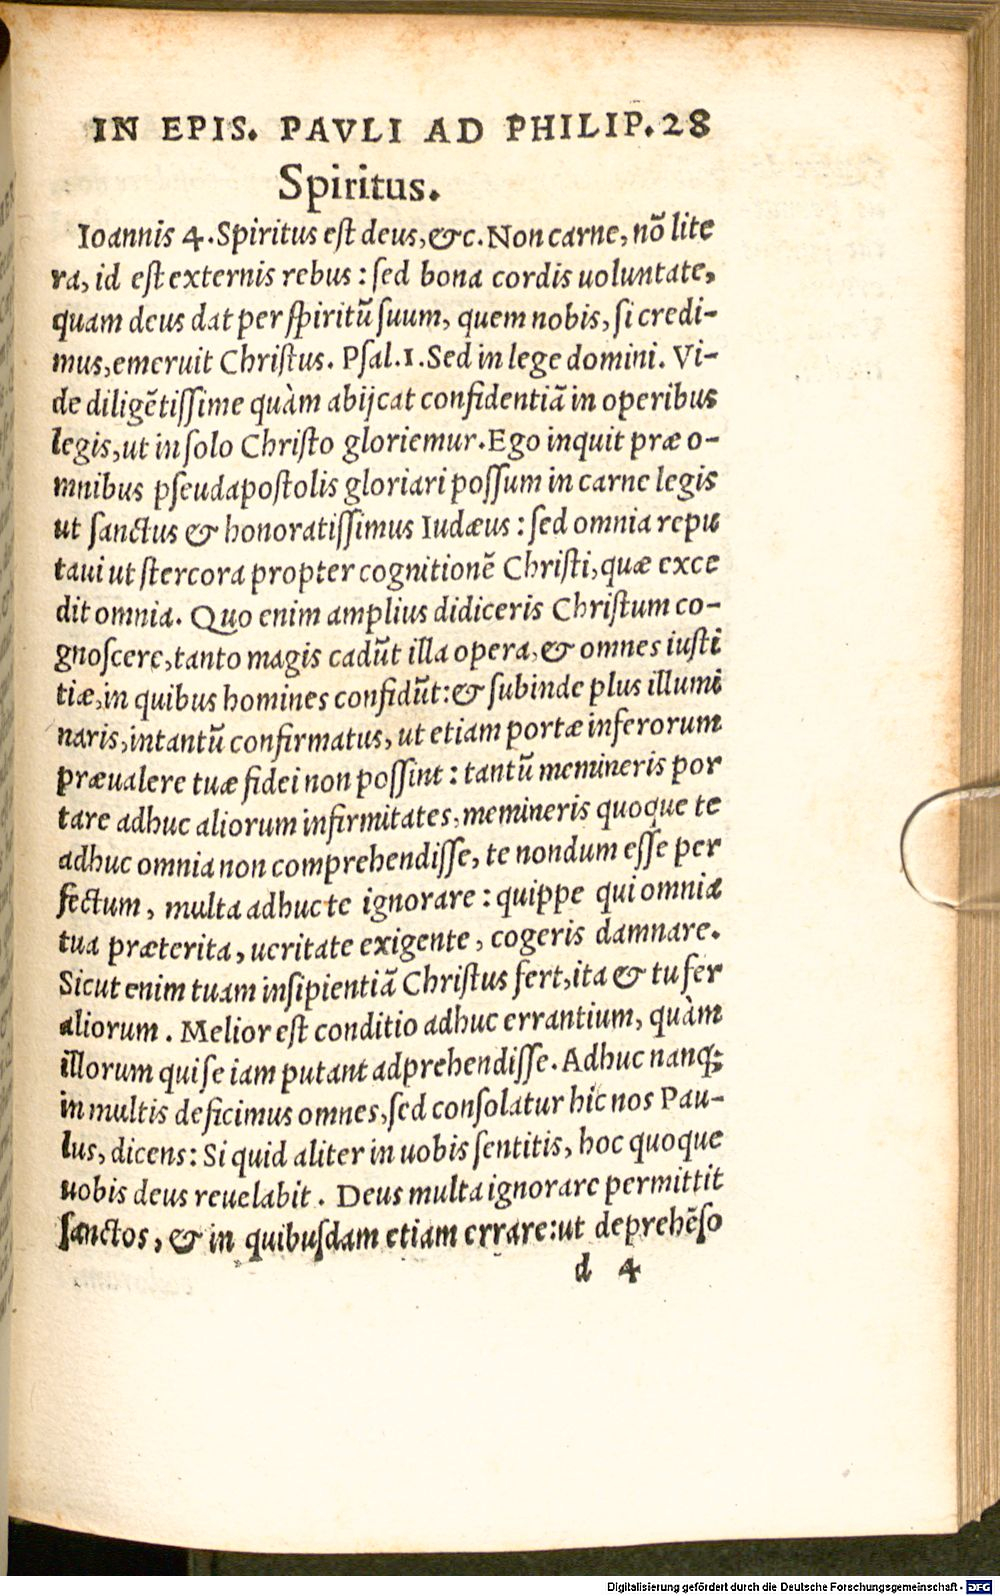 IN EPIS. PAVLI AD PHILIP. 28
Spiritus.
Ioannis 4. Spiritus est deus, &c. Non carne, nõ lite
ra, id est externis rebus: sed bona cordis uoluntate,
quam deus dat per spiritũ suum, quem nobis, si credi-
mus, emeruit Christus. Psal. 1. Sed in lege domini. Vi-
de diligẽtissime quàm abijcat confidentiã in operibus
legis, ut in solo Christo gloriemur. Ego inquit præ o-
mnibus pseudapostolis gloriari possum in carne legis
ut sanctus & honoratissimus Iudæus: sed omnia repu
taui ut stercora propter cognitionẽ Christi, quæ exce
dit omnia. Quo enim amplius didiceris Christum co-
gnoscere, tanto magis cadũt illa opera, & omnes iusti
tiæ, in quibus homines confidũt: & subinde plus illumi
naris, intantũ confirmatus, ut etiam portæ inferorum
præualere tuæ fidei non possint: tantũ memineris por
tare adhuc aliorum infirmitates, memineris quoque te
adhuc omnia non comprehendisse, te nondum esse per
fectum, multa adhuc te ignorare: quippe qui omnia
tua præterita, ueritate exigente, cogeris damnare.
Sicut enim tuam insipientiã Christus fert, ita & tu fer
aliorum. Melior est conditio adhuc errantium, quàm
illorum qui se iam putant adprehendisse. Adhuc nanq;
in multis deficimus omnes, sed consolatur hic nos Pau-
lus, dicens: Si quid aliter in uobis sentitis, hoc quoque
uobis deus reuelabit. Deus multa ignorare permittit
sanctos, & in quibusdam etiam errare: ut deprehẽso
d 4
Digitalisierung gefördert durch die Deutsche Forschungsgemeinschaft - DFG